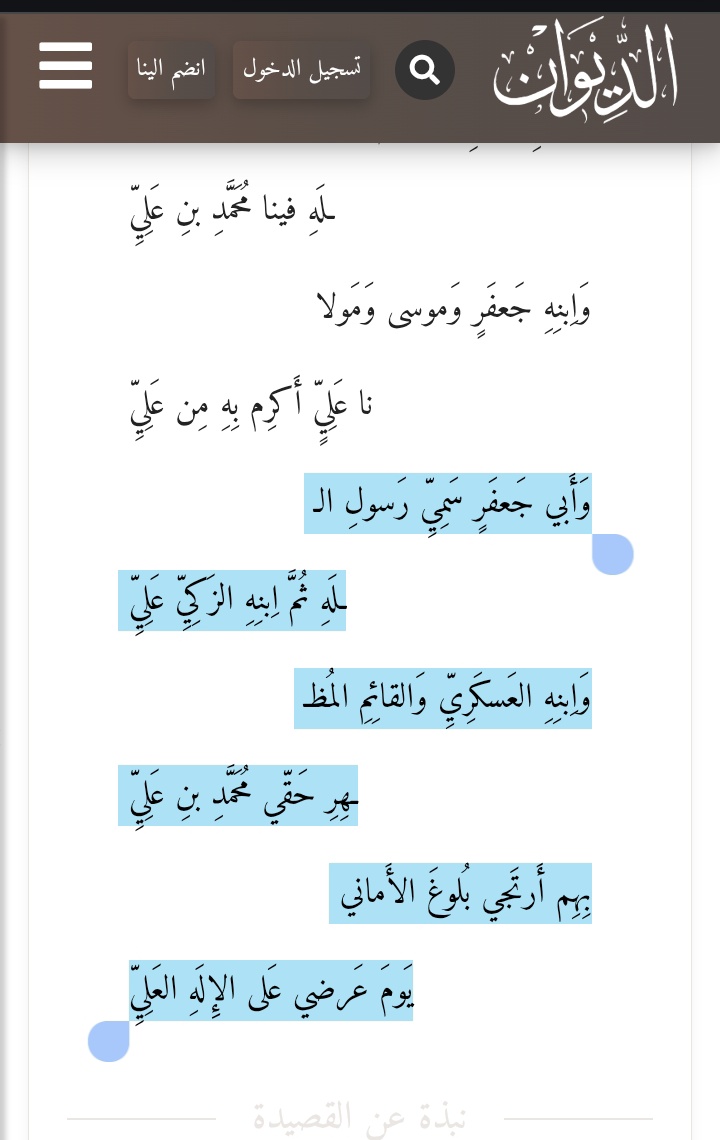 الدِّيوَان
تسجيل الدخول
انضم الينا
ـلَهِ فينا مُحَمَّدِ بنِ عَلِيِّ
وَاِبنِهِ جَعفَرٍ وَموسى وَمَولا
نا عَلِيٍّ أَكرِم بِهِ مِن عَلِيِّ
وَأَبي جَعفَرٍ سَمِيِّ رَسولِ الـ
ـلَهِ ثُمَّ اِبنِهِ الزَكِيِّ عَلِيِّ
وَاِبنِهِ العَسكَرِيِّ وَالقائِمِ المُظـ
ـهِرِ حَقّي مُحَمَّدِ بنِ عَلِيِّ
بِهِم أَرتَجي بُلوغَ الأَماني
يَومَ عَرضي عَلى الإِلَهِ العَلِيِّ
نبذة عن القصيدة